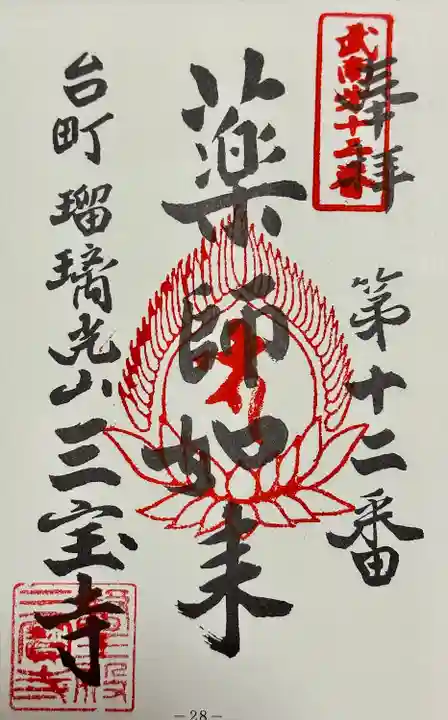 奉拝
武南第十二番
第十二番
薬師如来
台町 瑠璃光山 三宝寺
－28－